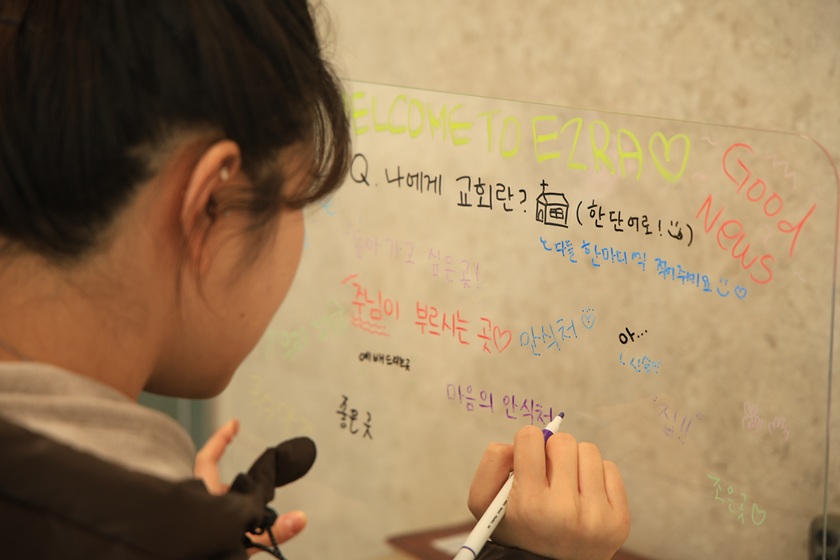 ELCOME TO EZRA♡
Good
News
Q. 나에게 교회란? (한 단어로!)
다들 한마디씩 적어주세요 ♡
돌아가고 싶은 곳!
주님이 부르시는 곳♡
안식처
아...
예배드리는곳
마음의 안식처
좋은 곳
집!!
조은곳♡